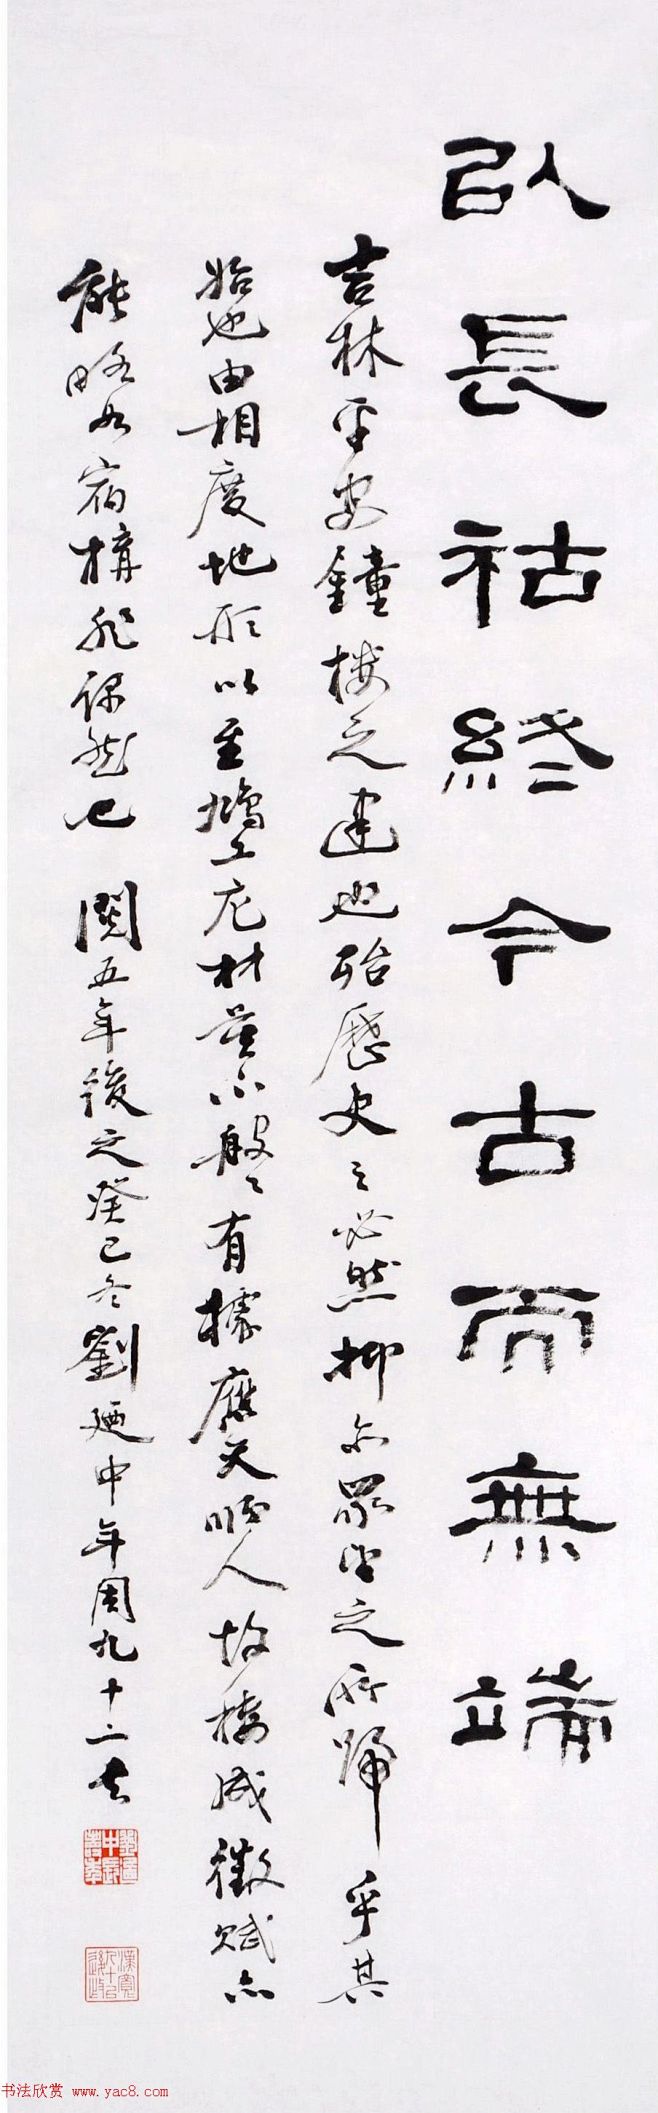 以長祜終今古而無端
吉林平安鐘楼之建也殆歷史之必然抑亦眾望之所歸乎其
始也由相度地形以至鳩工庀材莫不般般有據應天順人故楼成徵賦亦
能略如宿構非偶然也 閱五年後之癸巳冬劉廼中年周九十二矣
书法欣赏 www.yac8.com